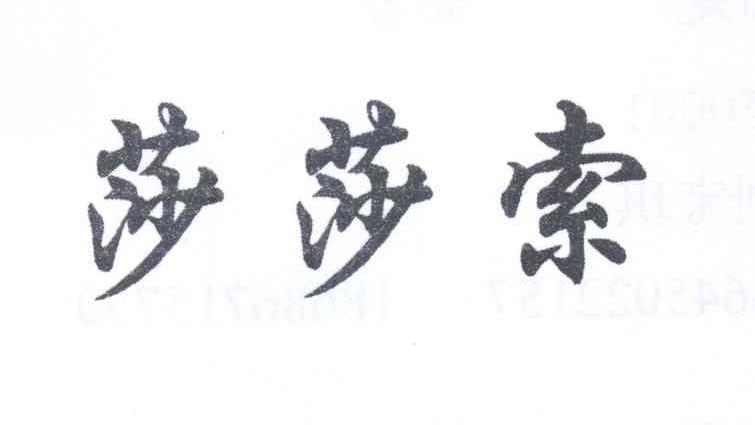 莎莎索